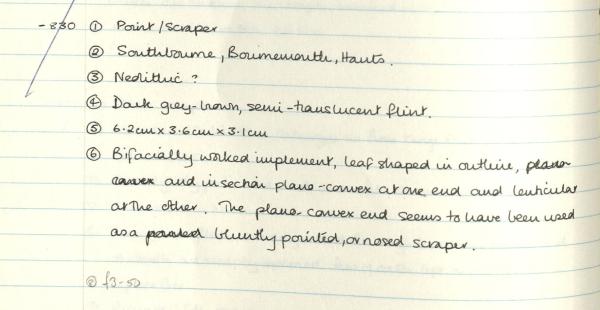 -830 ① Point/Scraper
② Southbourne, Bournemouth, Hants.
③ Neolithic ?
④ Dark grey-brown, semi-translucent flint.
⑤ 6.2cm x 3.6cm x 3.1cm
⑥ Bifacially worked implement, leaf shaped in outline, plano
convex and in section plano-convex at one end and lenticular
at the other. The plano-convex end seems to have been used
as a pointed bluntly pointed, or nosed scraper.
£3-50